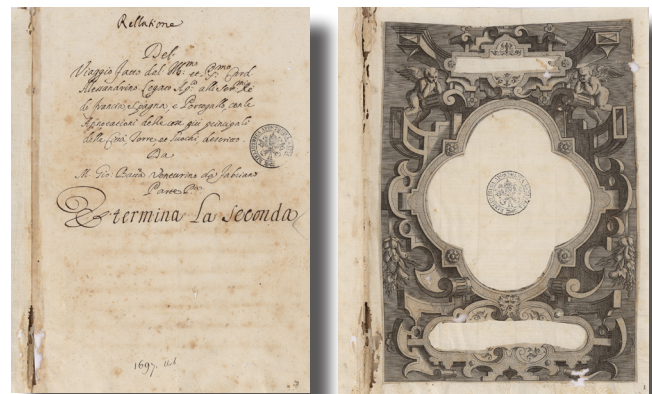 Rellatione
Del
Viaggio fatto dal Ill.mo et R.mo Card
Alessandrino Legato Ap.co alli Ser.mi Ré
di francia Spagna, e Portogallo, con le
Annotationi delle cose piu principali
delle Città, Terre, et Luochi, descritto
Da
M. Gio: Batta Venturino da Fabriano
Parte P.a
Et termina La seconda
1697.